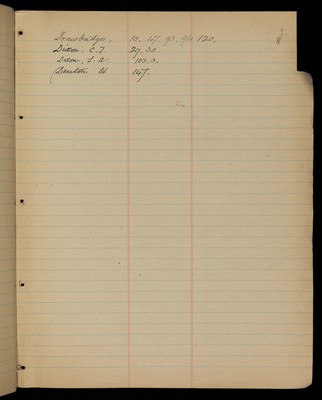 Drawbridge. 10. 47. 93. 94. 120.
Dixon. C. J. 29. 30.
Dixon. S. A. 102. 3.
Denton W 147.